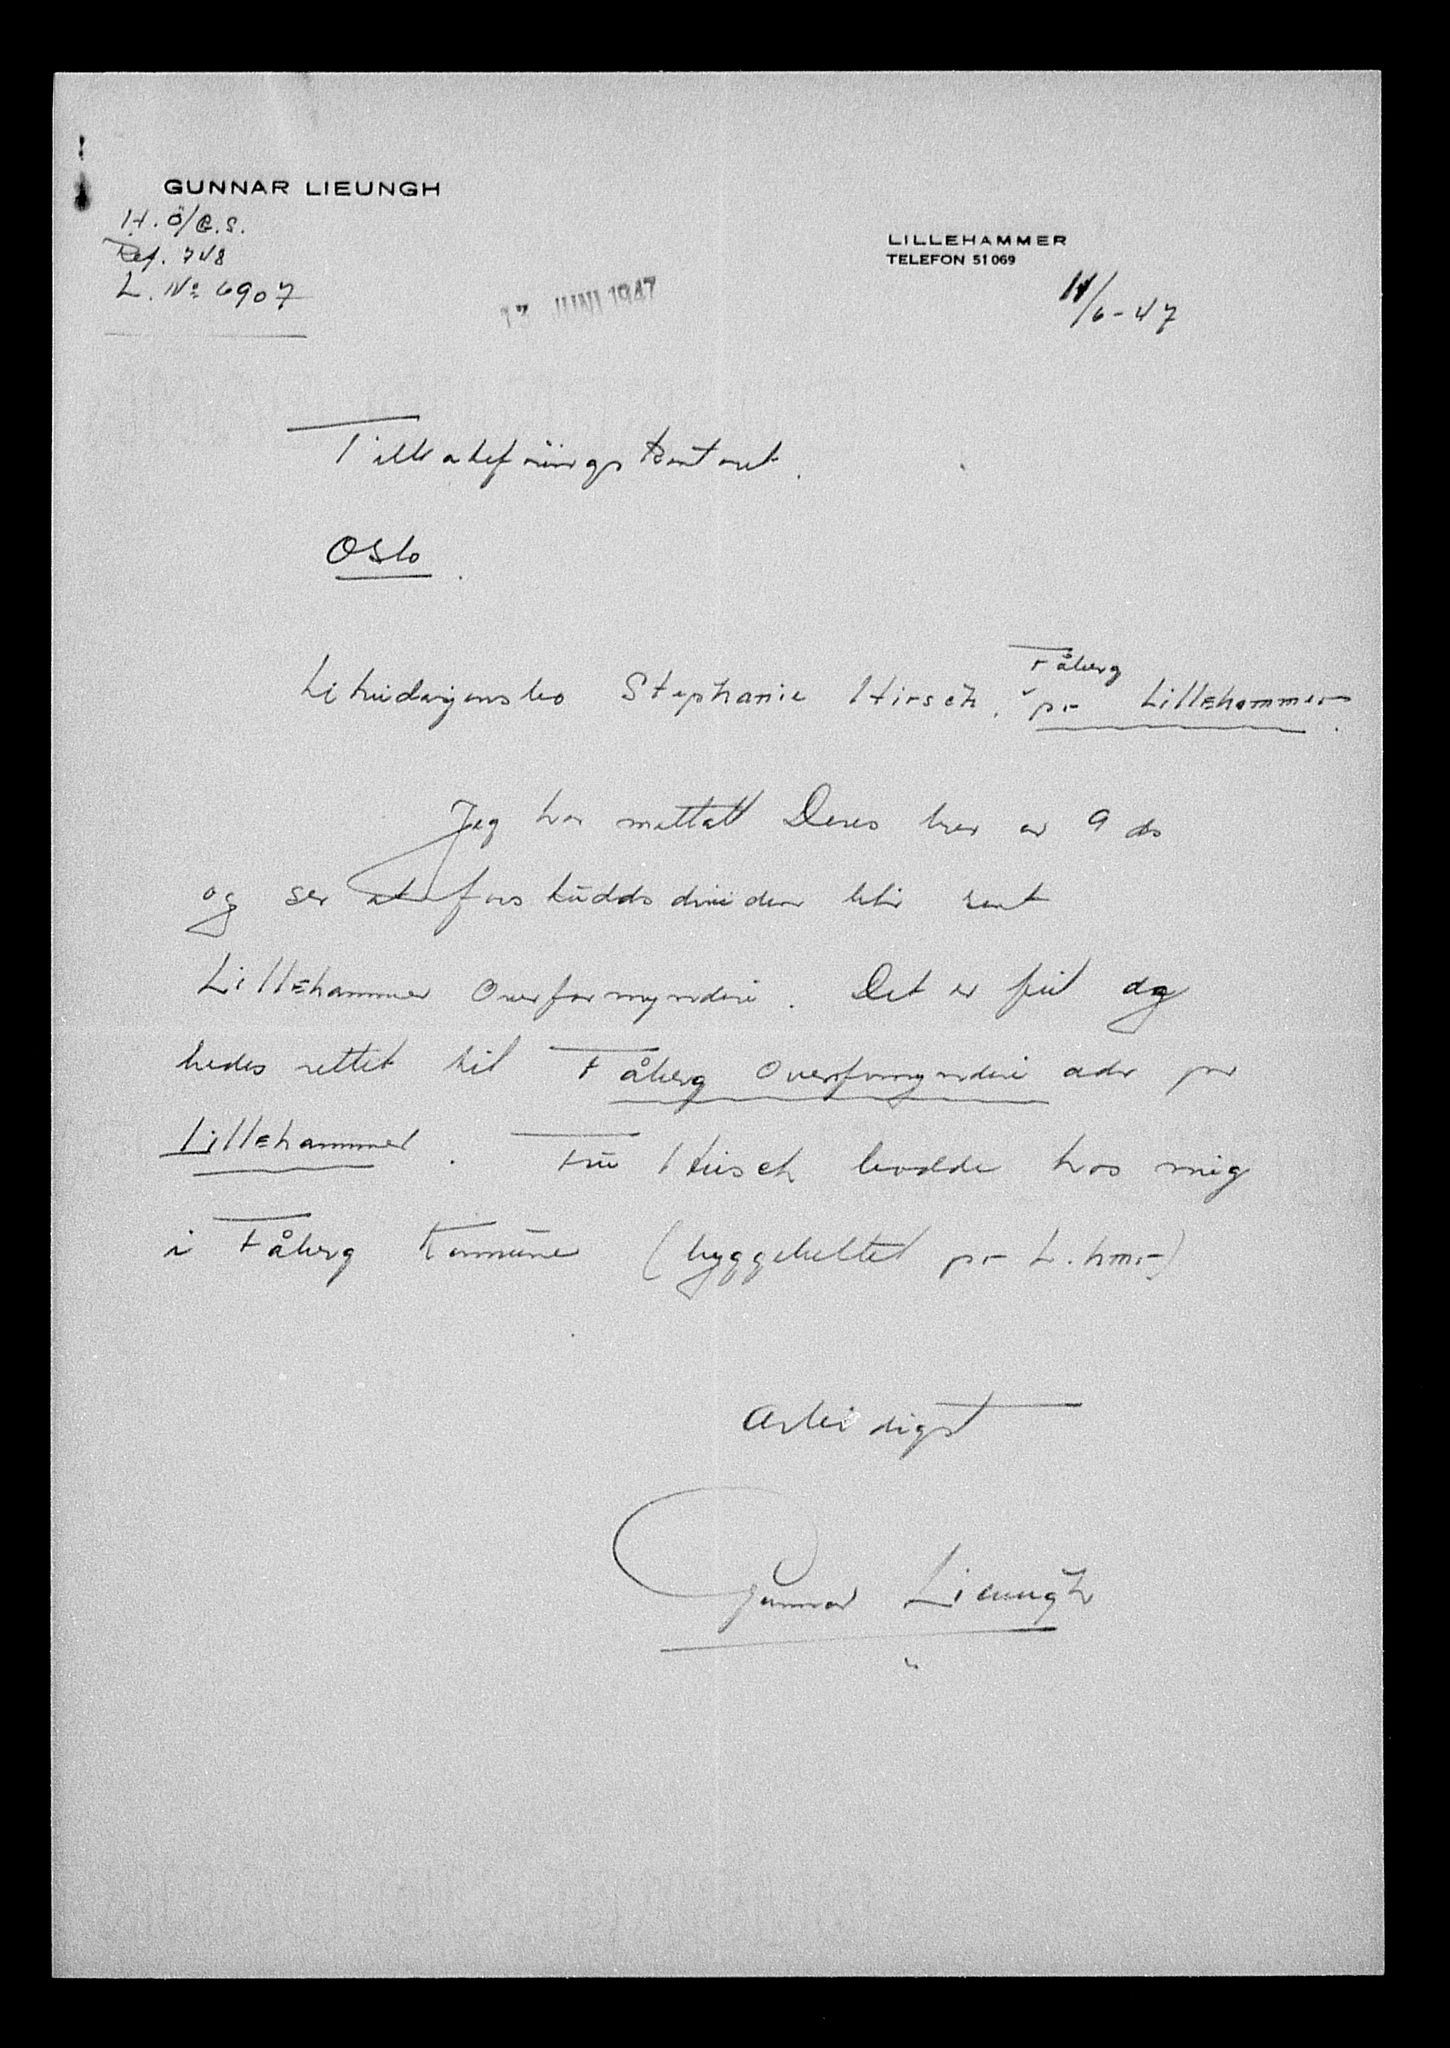 GUNNAR LIEUNGH
H. Ö/E.S.
Ref. 748
L. No 6907
LILLEHAMMER
TELEFON 51069
JUNI 1947
11/6-47
Tilbakeföringskontoret.
Oslo.
Fåberg
Likvidasjonsbo Stephanie Hirsch. pr Lillehammer.
Jeg har mottatt Deres brev av 9 ds
og ser at forskuddsdividen blir sent
Lillehammer Overformynderi. Det er feil og
bedes rettet til Fåberg Overformynderi adr pr
Lillehammer. Frü Hirsch bodde hos mig
i Fåberg Kommüne (byggebeltet pr L.hmr)
Ærbödigst
Gunnar Lieungh